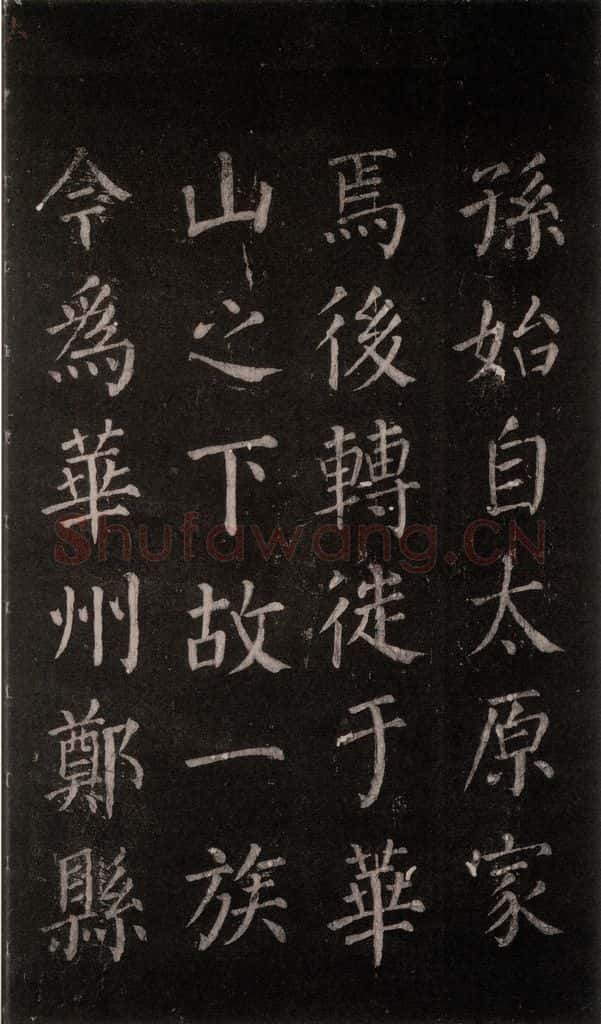 孫始自太原家
焉後轉徙于華
山之下故一族
今為華州鄭縣
Shufawang.CN